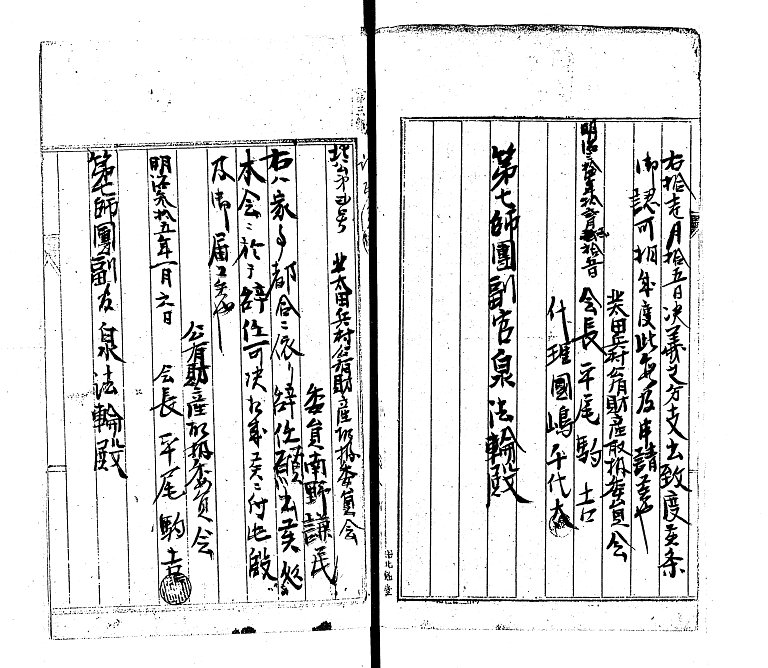 右拾壱月拾五日决議之分支出致度候条
御認可相成度此如及申請候也
北太田兵村公有財産取扱委員会
会長 平尾駒吉
什理 國嶋千代太
第七師團副官泉法輪殿
北太田兵村公有財産取扱委員会
委員南野謙民
右ハ家事都合ニ依リ辞任願出候処
本会ニ於テ辞任可决相成候ニ付此段
及御届候也
公有財産取扱委員会
明治参拾五年一月六日 会長 平尾駒吉
第七師團副官泉法輪殿